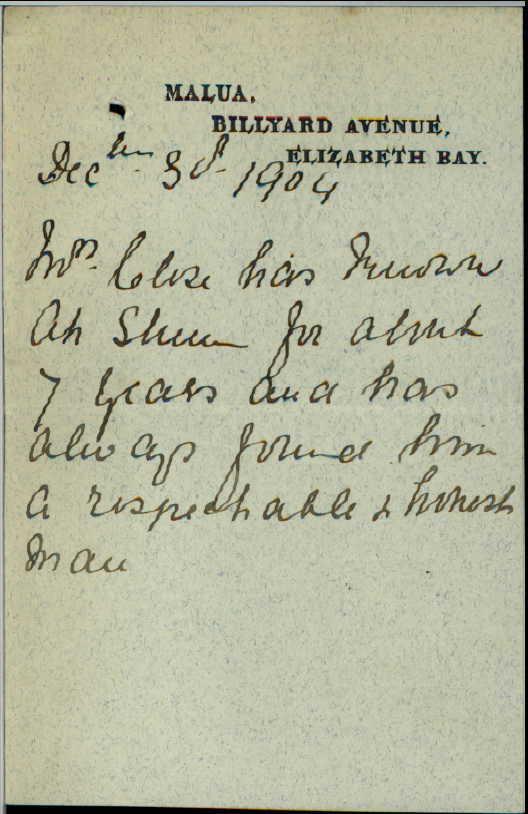 MALUA,
BILLYARD AVENUE,
ELIZABETH BAY.
Decber 3d 1904
Mrs Close has known
Ah Shum for about
7 years and has
always found him
a respectable & honest
man